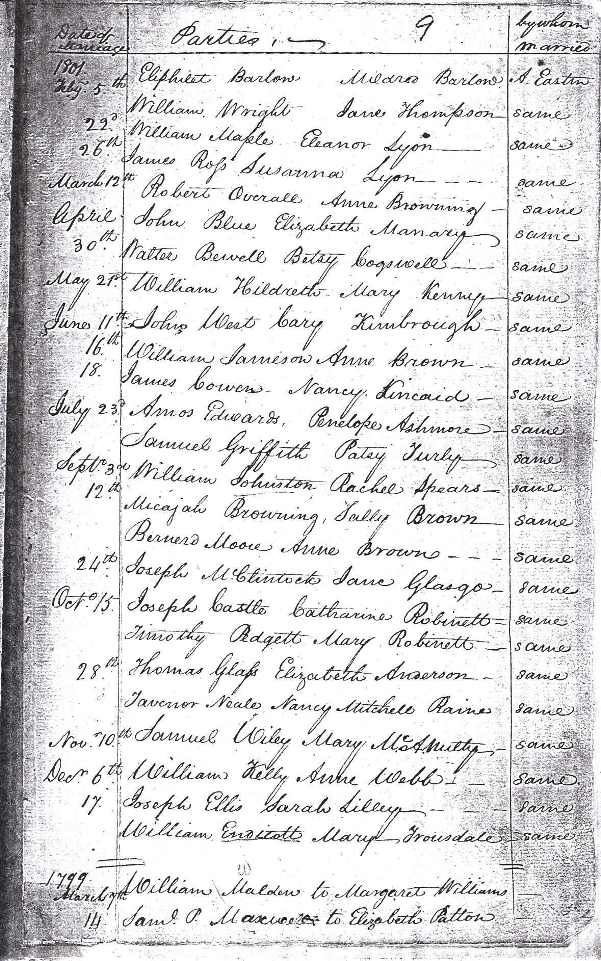 Date of marriage Parties 9 by whom married
1801 Feby. 5th Eliphilet Barlow Mildred Barlow A. Eastin
William Wright Jane Thompson same
22d William Maple Eleanor Lyon same
26th James Ross Susanna Lyon same
March 12th Robert Overall Anne Browning same
April John Blue Elizabeth Manary same
30th Walter Bewell Betsy Cogswell same
May 21st William Hildreth Mary Kenney same
June 11th John West Cary Kimbrough same
16th William Jameson Anne Brown same
18. James Cowen Nancy Kincaid same
July 23d Amos Edwards, Penelope Ashmore same
Samuel Griffith Patsy Turly same
Septr. 3d William Johnston Rachel Spears same
12th Micajah Browning, Sally Brown same
Bernerd Moore Anne Brown same
24th Joseph McClintock Jane Glasgo same
Octo. 15 Joseph Castle Catharine Robinett same
Timothy Padgett Mary Robinett same
28th Thomas Glass Elizabeth Anderson same
Tavenor Neale Nancy Mitchell Raine same
Nov. 10th Samuel Wiley Mary McAnulty same
Decr 6th William Kelly Anne Webb same
17. Joseph Ellis Sarah Lilley same
William Endicott Mary Trousdale same
1799 March William Malden to Margaret Williams
14 Saml. P. to Elizabeth Patton